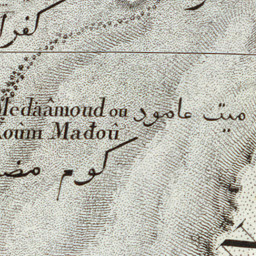 كفر
Medâamoud ou ميت عامود
Koûm Madoû
كوم مضو